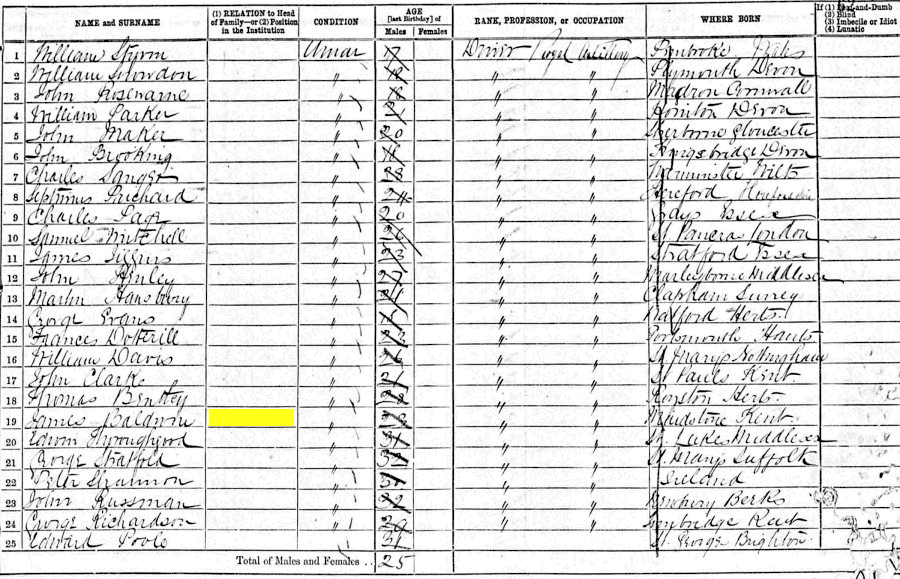 NAME and SURNAME (1) RELATION to Head of Family—or (2) Position in the Institution CONDITION AGE [last Birthday] of Males Females RANK, PROFESSION, or OCCUPATION WHERE BORN If (1) Deaf-and-Dumb (2) Blind (3) Imbecile or Idiot (4) Lunatic
1 William Unmar Driver Royal Artillery Pembroke Wales
2 William Slowdon " " " Plymouth Devon
3 John Rosewarne " " " Madron Cornwall
4 William Parker " " " Honiton Devon
5 John Maker " 20 " " Sherborne Gloucester
6 John Brooking " " " Kingsbridge Devon
7 Charles Sanger " 28 " " Warminster Wilts
8 Septimus " 24 " " Hereford
9 Charles Page " 20 " " Grays Essex
10 Samuel Mitchell " " " St Pancras London
11 James " " " Stratford Essex
12 John Henley " " " Marylebone Middlesex
13 Martin Hansbury " " " Clapham Surrey
14 George Evans " " " Watford Herts.
15 Frances Dotterill " " " Portsmouth Hants
16 William Davis " " " St Marys Nottingham
17 John Clarke " " " St Pauls Kent.
18 Thomas " " " Royston Herts.
19 James Baldwin " " " Maidstone Kent
20 Edwin Thoroughgood " 31 " " St. Lukes Middlesex
21 George Stratfold " 32 " " St. Marys Suffolk
22 Peter Shannon " 31 " " Ireland
23 John Russman " 32 " " Newbury Berks
24 George Richardson " 29 " " Tonbridge Kent
25 Edward Poole 31 St. George Brighton
Total of Males and Females .. 25